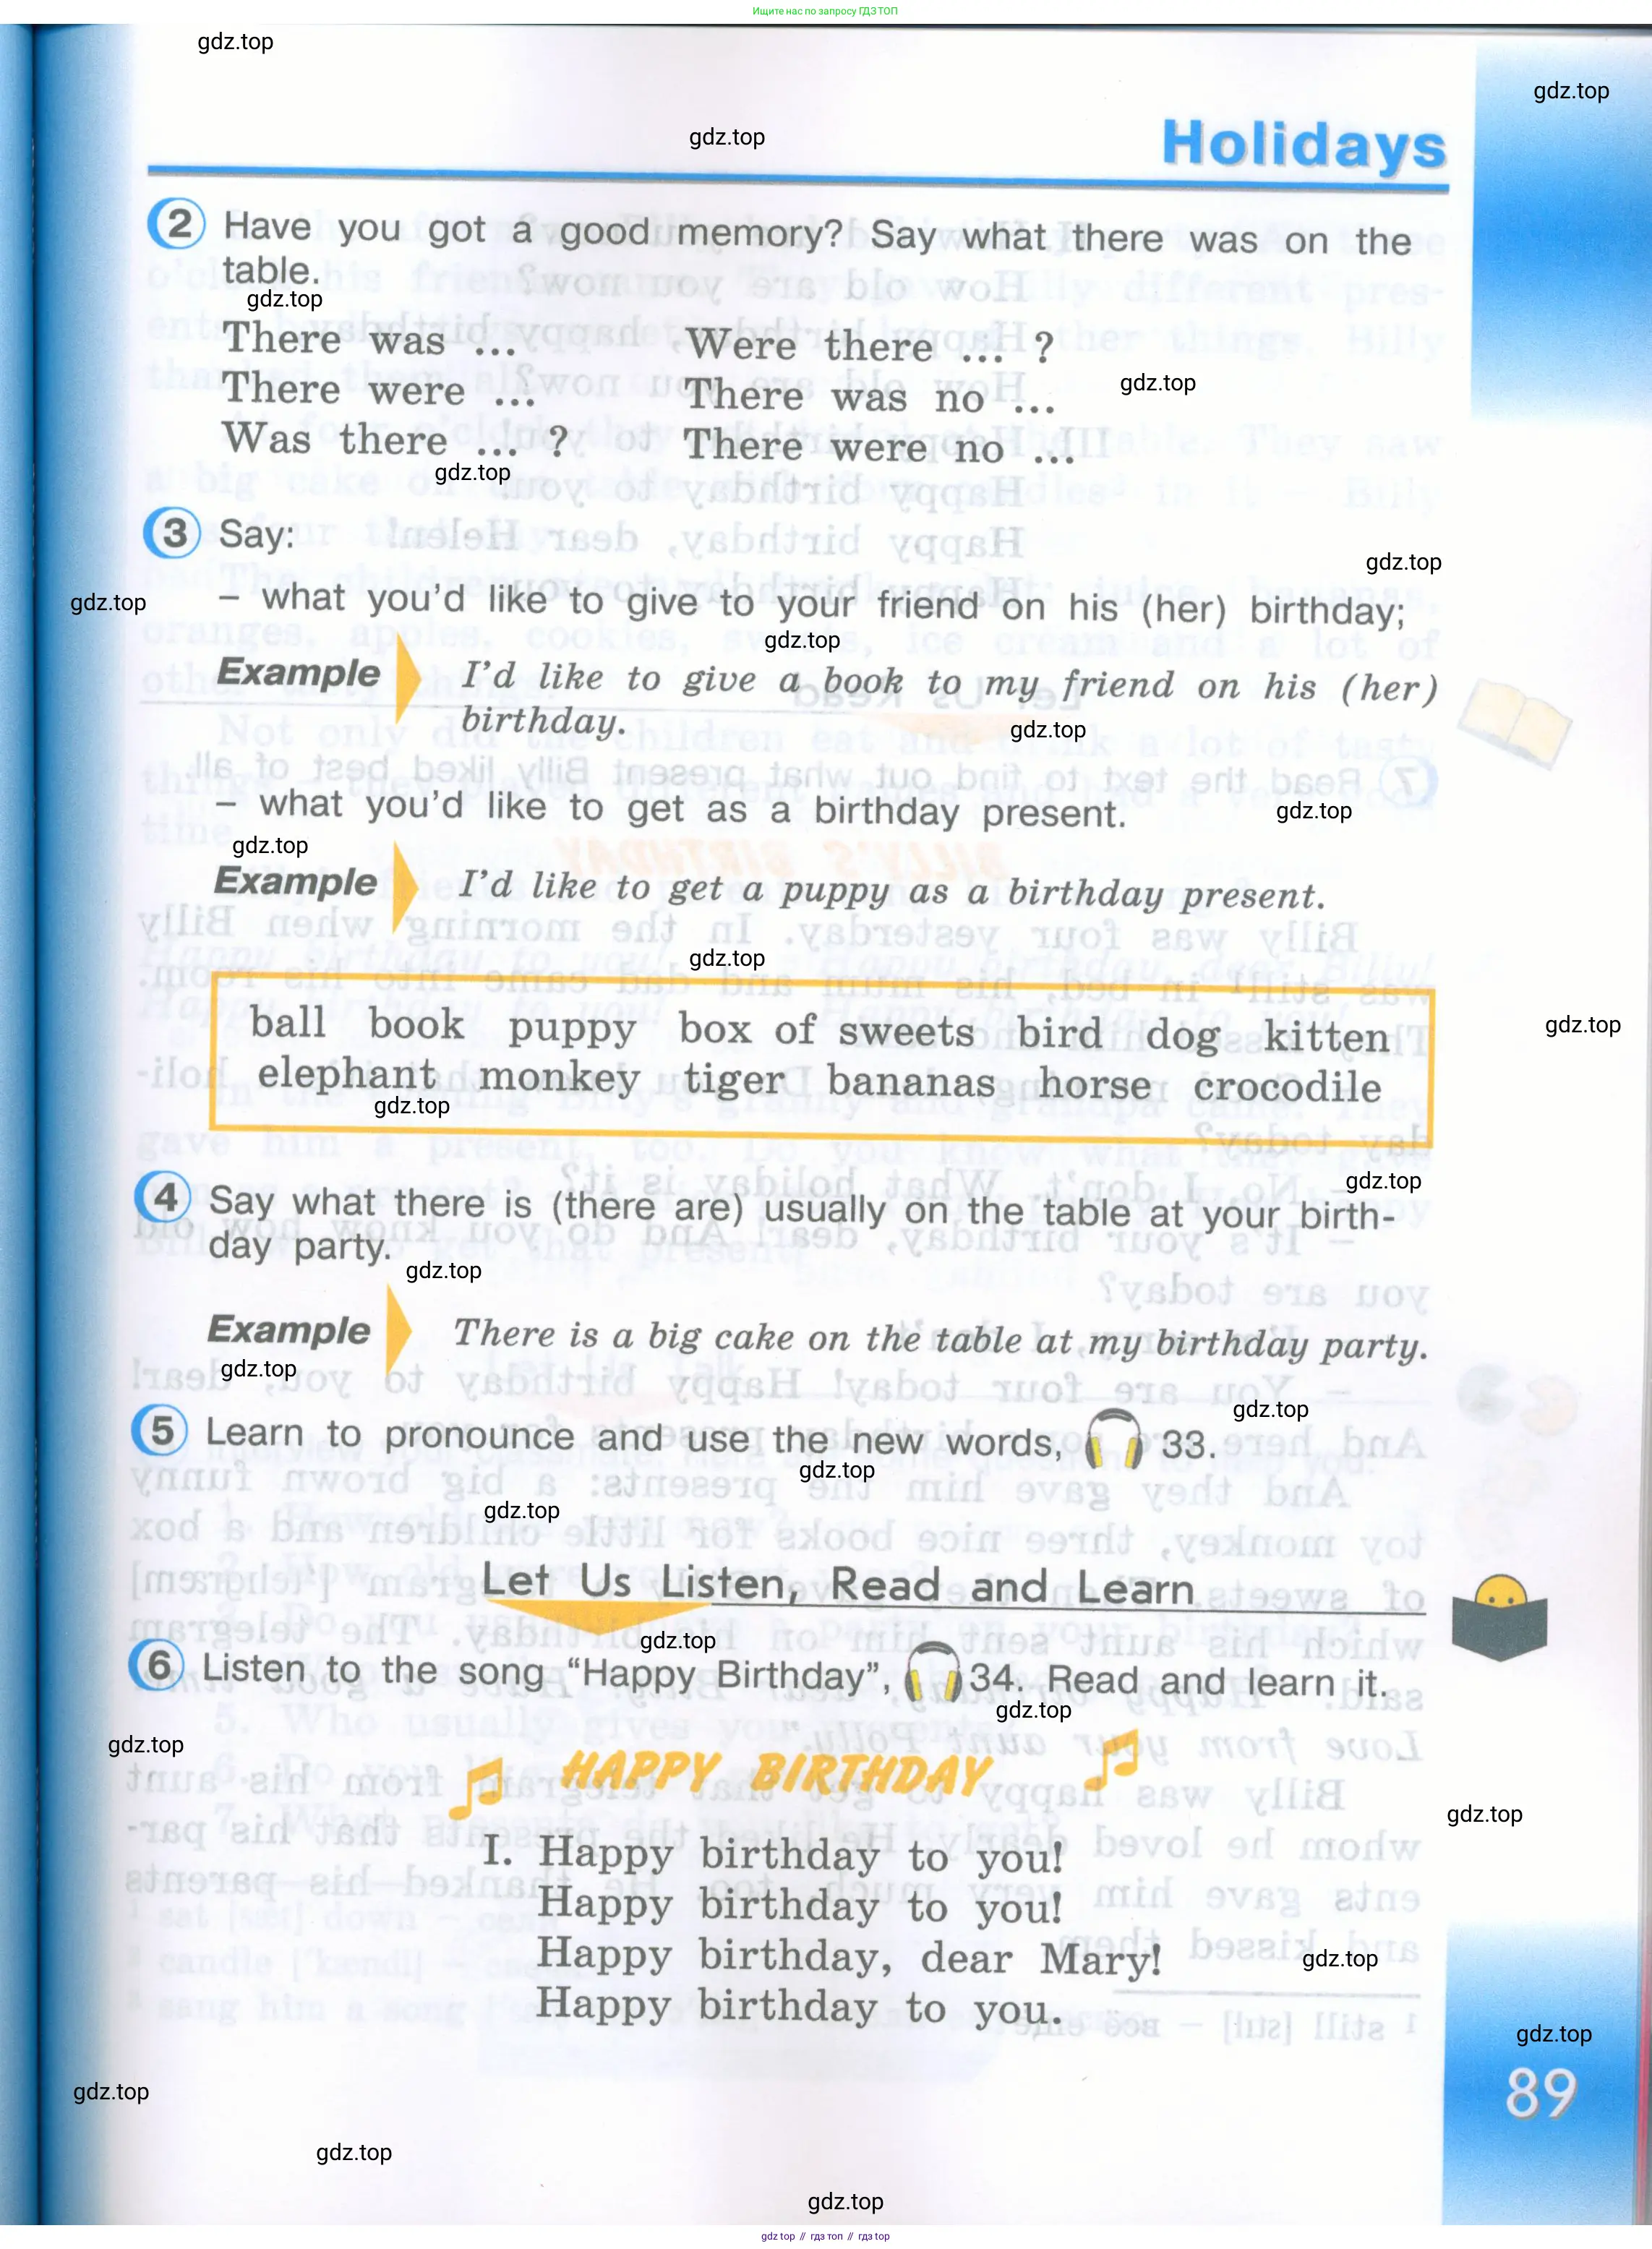 Ищите нас по запросу ГДЗ ТОП
gdz.top
gdz.top
gdz.top
Holidays
2 Have you got a good memory? Say what there was on the
table.
gdz.top
There was ... Were there ... ?
There were ... There was no ...
gdz.top
Was there ... ? There were no ...
gdz.top
3 Say:
gdz.top
– what you'd like to give to your friend on his (her) birthday;
gdz.top
gdz.top
Example I'd like to give a book to my friend on his (her)
birthday.
gdz.top
– what you'd like to get as a birthday present.
gdz.top
gdz.top
Example I'd like to get a puppy as a birthday present.
gdz.top
ball book puppy box of sweets bird dog kitten
gdz.top
elephant monkey tiger bananas horse crocodile
gdz.top
gdz.top
4 Say what there is (there are) usually on the table at your birth-
day party.
gdz.top
Example There is a big cake on the table at my birthday party.
gdz.top
gdz.top
5 Learn to pronounce and use the new words, 33.
gdz.top
gdz.top
Let Us Listen, Read and Learn
gdz.top
6 Listen to the song “Happy Birthday”, 34. Read and learn it.
gdz.top
gdz.top
HAPPY BIRTHDAY
gdz.top
I. Happy birthday to you!
Happy birthday to you!
Happy birthday, dear Mary!
gdz.top
Happy birthday to you.
gdz.top
89
gdz.top
gdz.top
gdz.top
gdz top // гдз топ // гдз top